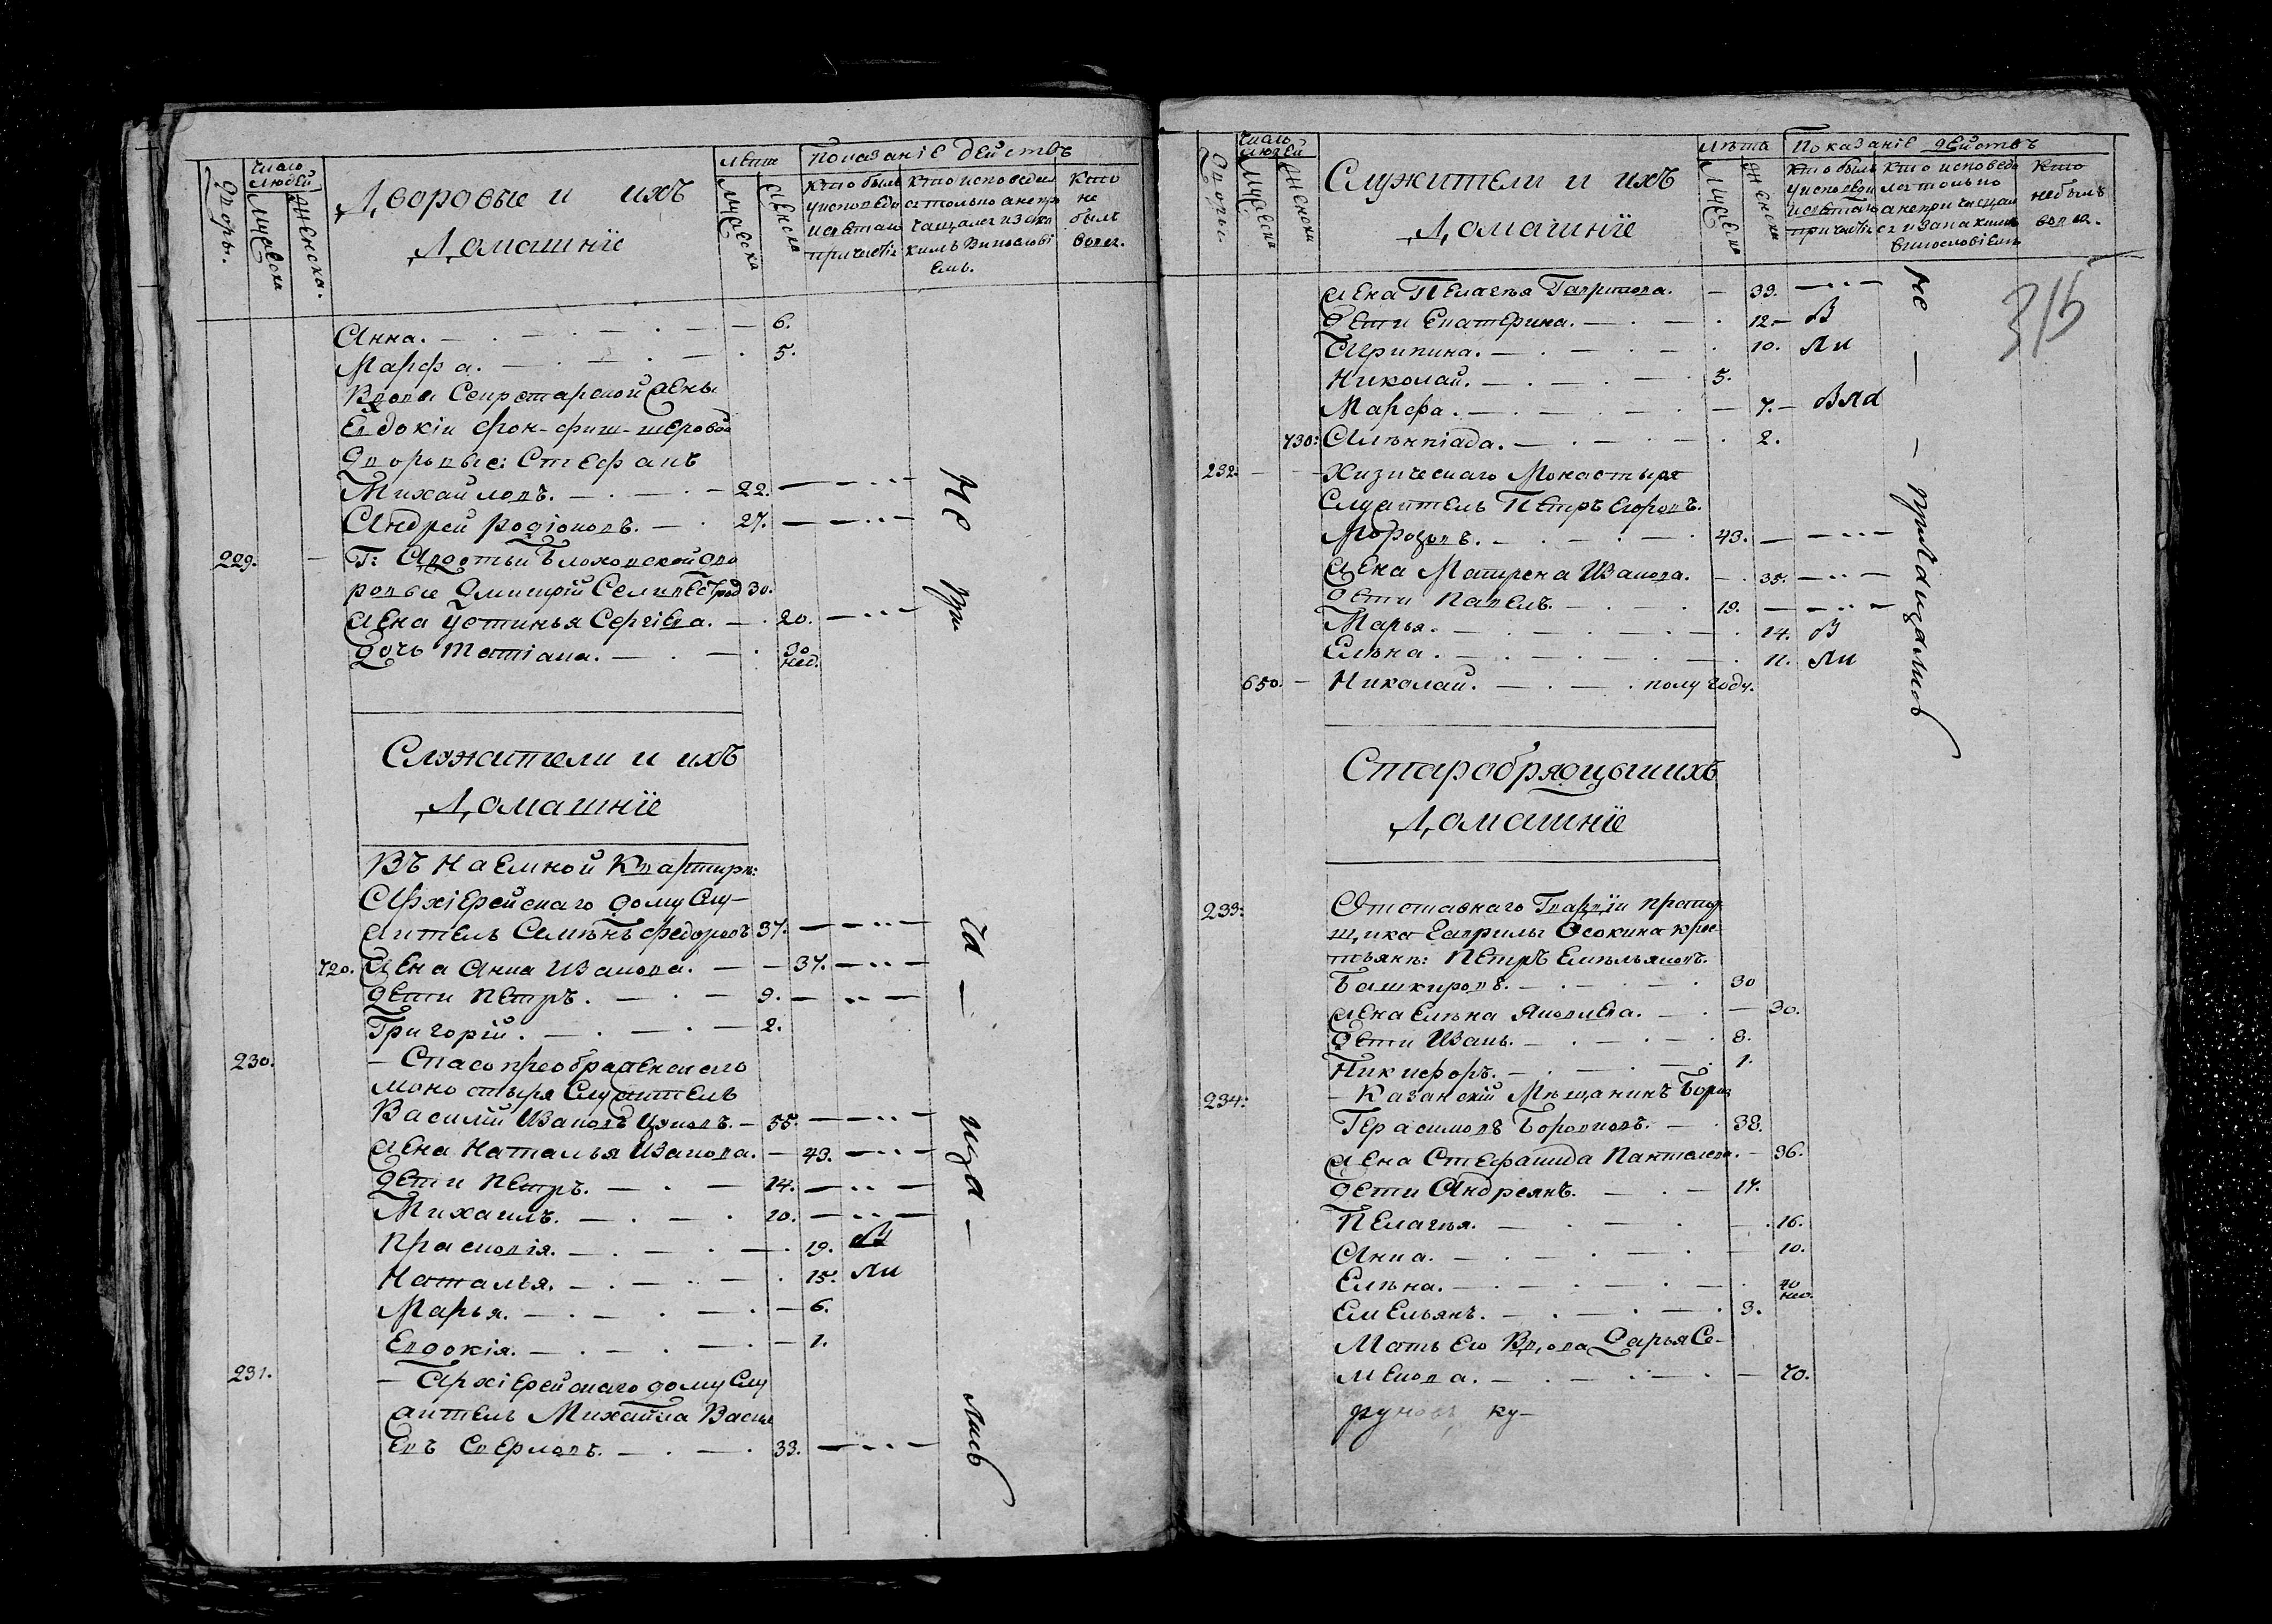 Дворы.
Число людей
Мужеска
Женска.
Дворовые и ихъ
Домашнїе
Лета
Мужеска
Женска
Показанiе действъ
Кто былъ
у исповеди
и святаго
причастiя
Кто исповедал
ся только а не при
чащался и за ка
кимъ винословi
емъ.
Кто
не
былъ
вовся.
Анна. 6.
Марфа. 5.
Вдовы Секретарской жены
Евдокiи фон-фиш-шеровой
Дворовые: Стефанъ
Михайловъ. 22.
Андрей Родiоновъ. 27.
229. Г: Авдотьи Блоховской дво
ровые Дмитрiй 30.
жена Устинья Сергiева. 20.
дочь Татiана. 30 нед.
Служители и ихъ
Домашнїе
Въ наемной Квартире:
Архiерейскаго дому Слу-
житель Семѣнъ Федоровъ 37.
720. жена Анна Иванова. 37.
дети Петръ. 9.
Григорiй. 2.
230. Спасопреображенскаго
монастыря Служитель
Василiй Ивановъ 55.
жена Наталья Иванова. 43.
дети Петръ. 14.
Михаилъ. 10.
Прасковiя. 19. В
Наталья. 15. Ли
Марья. 6.
Евдокiя. 1.
231. Архiерейскаго дому Слу
житель Михайла Василь
евъ 33.
Не при ча ща лись
Дворы.
Число людей
Мужеска
Женска
Служители и ихъ
Домашнїе
Лѣта
Мужеска
Женска
Показанiе действъ
Кто былъ
у исповеди
и святаго
причастiя
Кто исповеда
лся только
а не причащал
ся и за какимъ
винословiемъ
Кто
не былъ
вовся.
315
жена Пелагѣя Гаврилова. 33.
Дети Екатерина. 12. В
Агрипина. 10. Ли
Николай. 5.
Марфа. 7. В Ла
730: Алимпiада. 2.
232. Хизическаго Монастыря
Служитель Петръ Егоровъ.
Морозовъ. 43.
жена Матрена Иванова. 35.
дети Павелъ. 19.
Марья. 14. В
Елѣна. 11. Ли
650. Николай. полу году.
Не причащались
Старобрядцы и ихъ
Домашнїе
233: Отставнаго Гвардiи прапор
щика Гаврилы Осокина крес
тьянъ: Петръ Емельяновъ.
Башкировъ. 30
жена Елѣна Яковлева. 30.
Дети Иванъ. 8.
Никифоръ. 1.
234: Казанскiй Мѣщанинъ Борис
Герасимовъ 38.
жена Стефанида Пантелева. 36.
Дети Андреянъ. 17.
Пелагѣя. 16.
Анна. 10.
Елѣна. 40 нед.
Емельянъ. 3.
Мать его Вдова Дарья Се-
менова. 70.